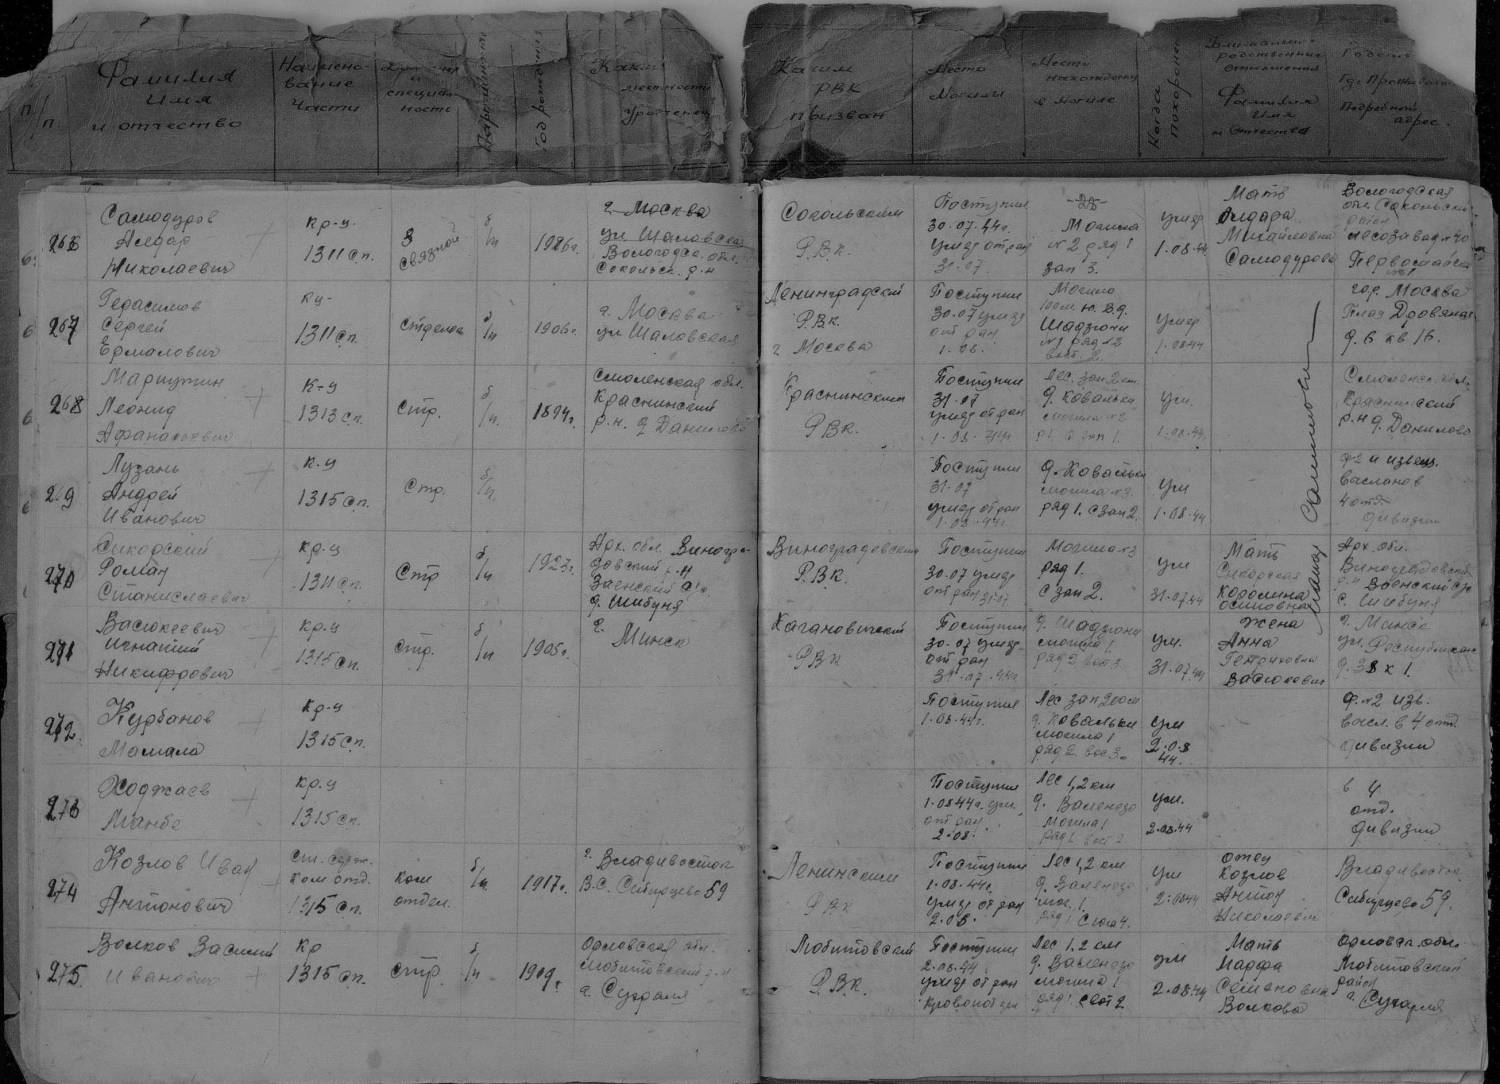 п/п
Фамилия
Имя
и отчество
Наимено-
вание
части
и
специа-
ность
Партийность
Год рождения
Какой
местности
Уроженец
Каким
РВК
призван
Место
Могилы
Место
нахождения
в могиле
Когда
Похоронен
родственные
отношения
Фамилия
Имя
и Отчество
Где Прожива
Подробный
адрес.
266
Самодуров
Алдар
Николаевич
кр-ц
1311 сп.
связной
б/п
1926г.
г. Москва
ул Шаловская
Вологодск. обл.
Сокольск. р-н
Сокольским
Р.В.К.
Поступил
30.07.44г.
умер от ран
31.07.
Могила
№2 ряд 1
зап 3.
умер
1.08.44
Мать
Алдара
Михайловна
Самодурова
Вологодская
обл. Сокольский
район
лесозавод №40
267
Герасимов
Сергей
Ермалович
кц-
1311 сп.
отделен
б/п
1906г.
г. Москва
ул Шаловская
Ленинградский
Р.В.К.
г Москва
Поступил
30.07 умер
от ран
1.08.
Могила
Шадзюни
№1 ряд 2
вост. 2.
умер
1.08.44
гор. Москва
Дровяная
д. 6 кв 16.
268
Мартутин
Леонид
Афанасьевич
к-ц
1313 сп.
стр.
б/п.
1894г.
Смоленская обл.
Краснинский
р.н. д Данилово
Краснинским
Р.В.К.
Поступил
31.07
умер от ран
1.08.44г
Лес. зап 2 км
д. Ковальки
могила №2
ум.
1.08.44
Смоленск. обл.
Краснинский
р.н д. Данилово
269
Лузань
Андрей
Иванович
к.ц
1315 сп.
стр.
б/п.
Поступил
31.07
умер от ран
1.08.44г.
д. Ковальки
могила №3
ряд 1. с зап 2.
ум
1.08.44
ф 2 и извещ.
высланов
4 отд.
дивизии
270
Сикорский
Роман
Станиславич
кр-ц
1311 сп.
стр
б/п
1927г.
Арх. обл. Виногра-
довский р.н
Заенский с/с.
д. Шибуня
Виноградовским
Р.В.К.
Поступил
30.07 умер
от ран 31.07
Могила №3
ряд 1.
с зап 2.
ум
31.07.44
Мать
Сикорская
Каролина
Осиповна
Арх. обл.
Виноградовский
р.н Заенский с/с
с. Шибуня
271
Васюкевич
Игнатий
Никифрович
кр.ц
1315 сп.
стр.
б/п
1905г.
г. Минск
Кагановический
РВК
Поступил
30.07 умер
от ран
31.07.44г
д. Шадзюни
могила 1
ряд 2 вос 3
ум.
31.07.44
Жена
Анна
Генриховна
Васюкевич
г. Минск
ул. Республикан
д. 38 к 1.
272.
Курбанов
Мамала
кр-ц
1315 сп.
Поступил
1.08.44г.
Лес зап 200 м
д. Ковальки
могила 1
ряд 2 вос 3.
ум
2.08
44.
ф. №2 изв.
высл. в 4 отд.
дивизии
273
Ходжаев
Манбе
кр.ц
1315 сп.
Поступил
1.08 44г. ум.
от ран
2.08.
Лес 1,2 км
Могила 1
ряд 1 вост 2
ум.
2.08.44
в 4
отд.
дивизии
274
Козлов Иван
Антонович
ст. серж.
ком отд.
1315 сп.
ком
отдел.
б/п
1917г.
г. Владивосток
В.С. Сибирцево 59
Ленинским
РВК
Поступил
1.08.44г.
умер от ран
2.08.
Лес 1,2 км
мог. 1.
ряд 1 с юга 4.
ум
2.08.44
отец
Козлов
Антон
Николаевич
Владивосток
Сибирцево 59.
275.
Волков Василий
Иванович
кр
1315 сп.
стр.
б/п
1909г
Орловская обл.
Любитовский р.н
д. Сухраля
Любитовский
Р.В.К.
Поступил
2.08.44
умер от ран
Лес 1,2 км
могила 1
ряд 1 свот 2
ум
2.08.44
Мать
Марфа
Семеновна
Волкова
Орловск. обл.
Любитовский
район